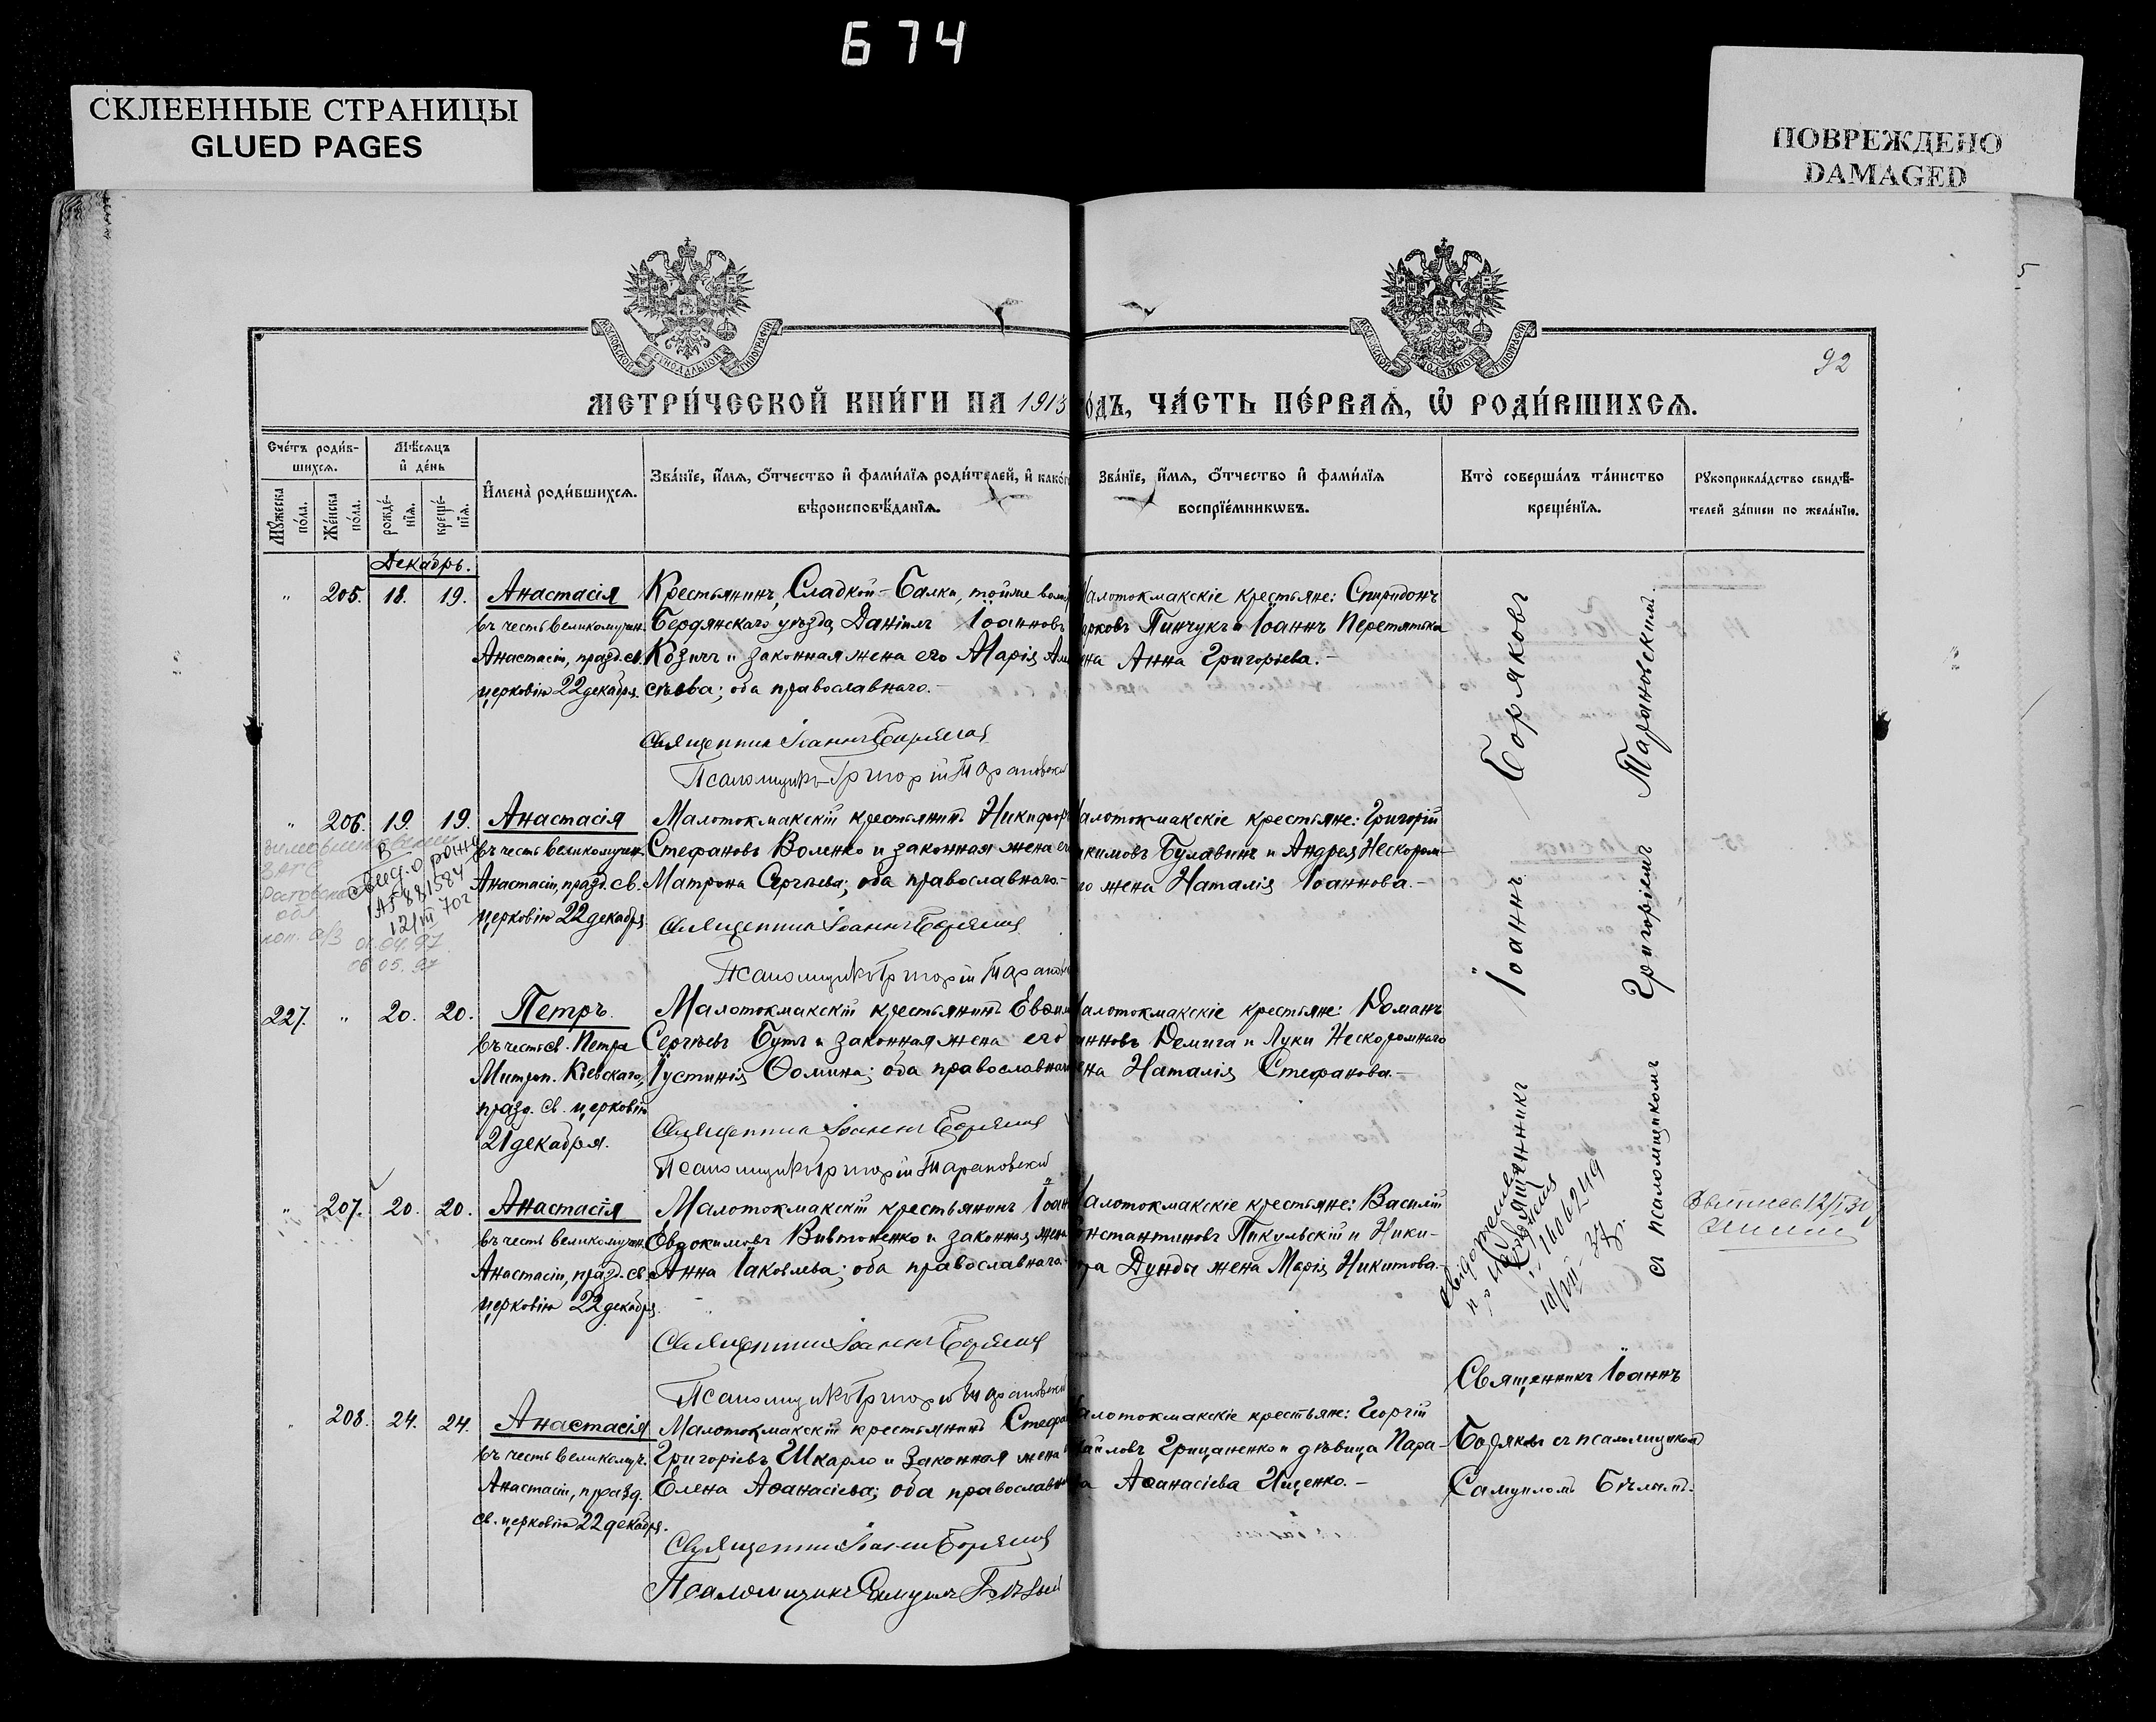 674
СКЛЕЕННЫЕ СТРАНИЦЫ
GLUED PAGES
ПОВРЕЖДЕНО
DAMAGED
МОСКОВСКОЙ СѴНОДАЛЬНОЙ ТИПОГРАФІИ
МОСКОВСКОЙ СѴНОДАЛЬНОЙ ТИПОГРАФІИ
92
МЕТРИ́ЧЕСКОЙ КНИ́ГИ НА 1913
ОДЪ, ЧА́СТЬ ПЕ́РВАѦ, Ѡ҆ РОДИ́ВШИХСѦ.
Сче́тъ роди́в-
шихсѧ.
Мꙋ́жеска
по́ла.
Же́нска
по́ла.
Мѣ́сѧцъ
и҆ де́нь
рожде́-
нїѧ.
креще́-
нїѧ.
И҆мена̀ роди́вшихсѧ.
Зва́нїе, и҆́мѧ, о҆́тчество и҆ фами́лїѧ роди́телей, и҆ како́г
вѣроисповѣ́данїѧ.
Зва́нїе, и҆́мѧ, о҆́тчество и҆ фами́лїѧ
воспрїе́мникѡвъ.
Кто̀ соверша́лъ та́инство
креще́нїѧ.
Рꙋкоприкла́дство свидѣ́-
телей за́писи по жела́нїю.
Декабрь.
" 205. 18. 19. Анастасія
въ честь великомучен.
Анастасіи, празд. св.
церковію 22 декабря.
Крестьянинъ, Сладкой-Балки, тойже воло
Бердянскаго уѣзда, Даніилъ Іоанновъ
Козичъ и законная жена его Марія
сѣева; оба православнаго.-
Священник Іоаннъ Боряков
Псаломщикъ Григорій Тарановскій
алотокмакскіе крестьяне: Спиридонъ
арковъ Пинчукъ и Іоаннъ Перетятька
ена Анна Григорьева.-
" 206. 19. 19. Анастасія
въ честь великомучен.
Анастасіи, празд. св.
церковію 22 декабря
Малотокмакскій крестьянинъ Никифоръ
Стефановъ Воленко и законная жена ег
Матрона Сергѣева; оба православнаго.-
Священник Іоаннъ Боряков
Псаломщикъ Григорій Тарано
алотокмакскіе крестьяне: Григорій
кимовъ Булавинъ и Андрея Нескором-
го жена Наталія Іоаннова.-
ЗАГС
Ростовской
обл.
В
Свид. о рожд
АГ 881584
12/III 70г
01.04.97
06.05.97
227. " 20. 20. Петръ.
въ честь св. Петра
Митроп. Кіевскаго,
празд. св. церковію
21 декабря.
Малотокмакскій крестьянинъ Евѳим
Сергѣевъ Бутъ и законная жена его
Іустинія Ѳомина; оба православнаг
Священник Іоаннъ Боряков
Псаломщикъ Григорій Тарановскій
алотокмакскіе крестьяне: Романъ
анновъ Демига и Луки Нескоромнаго
ена Наталія Стефанова.-
" 207. 20. 20. Анастасія
въ честь великомучен.
Анастасіи, празд. св.
церковію 22 декабря.
Малотокмакскій крестьянинъ Іоан
Евдокимовъ Вивтоненко и законная жена
Анна Іаковлева; оба православнаго.
Священник Іоаннъ Боряков
Псаломщикъ Григорій Тарановскій
алотокмакскіе крестьяне: Василій
онстантиновъ Пикульскій и Ники-
ора Дунды жена Марія Никитова.-
" 208. 24. 24. Анастасія
въ честь великомуч.
Анастасіи, празд.
св. церковію 22 декабря.
Малотокмакскій крестьянинъ Стефан
Григоріевъ Шкарло и законная жена
Елена Аѳанасіева; оба православн
Священник Іоаннъ Боряков
Псаломщикъ Самуилъ Бѣлый
алотокмакскіе крестьяне: Георгій
аиловъ Грицаненко и дѣвица Пара-
а Аѳанасіева Ищенко.-
Священникъ Іоаннъ Боряковъ
съ псаломщикомъ Григоріемъ Тарановскимъ.
1606249
10/VII-37г.
Священникъ Іоаннъ
Боряковъ съ псаломщикомъ
Самуиломъ Бѣлымъ.